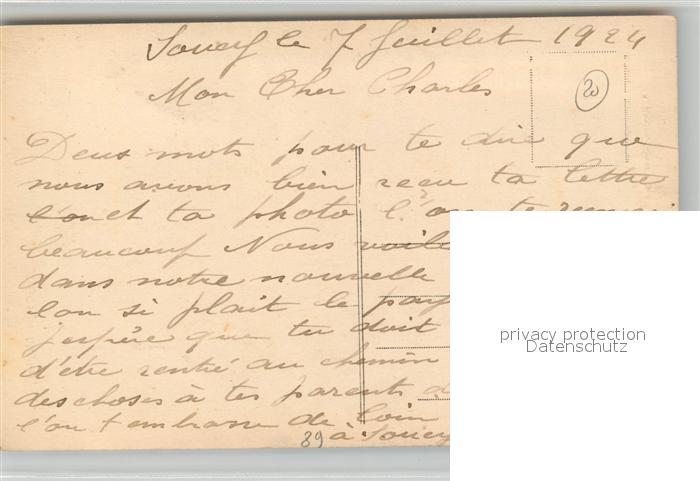 Soucy le 7 Juillet 1924
20
Mon Cher Charles
Deux mots pour te dire que
nous avons bien reçu ta lettre
l'on et ta photo l'on te
beaucoup Nous voila
dans notre nouvelle
l'on si plait le
j'espère que tu doit
d'être rentré au chemin
des choses à tes parents
l'on t embrasse de loin
39 à Soucy
privacy protection
Datenschutz